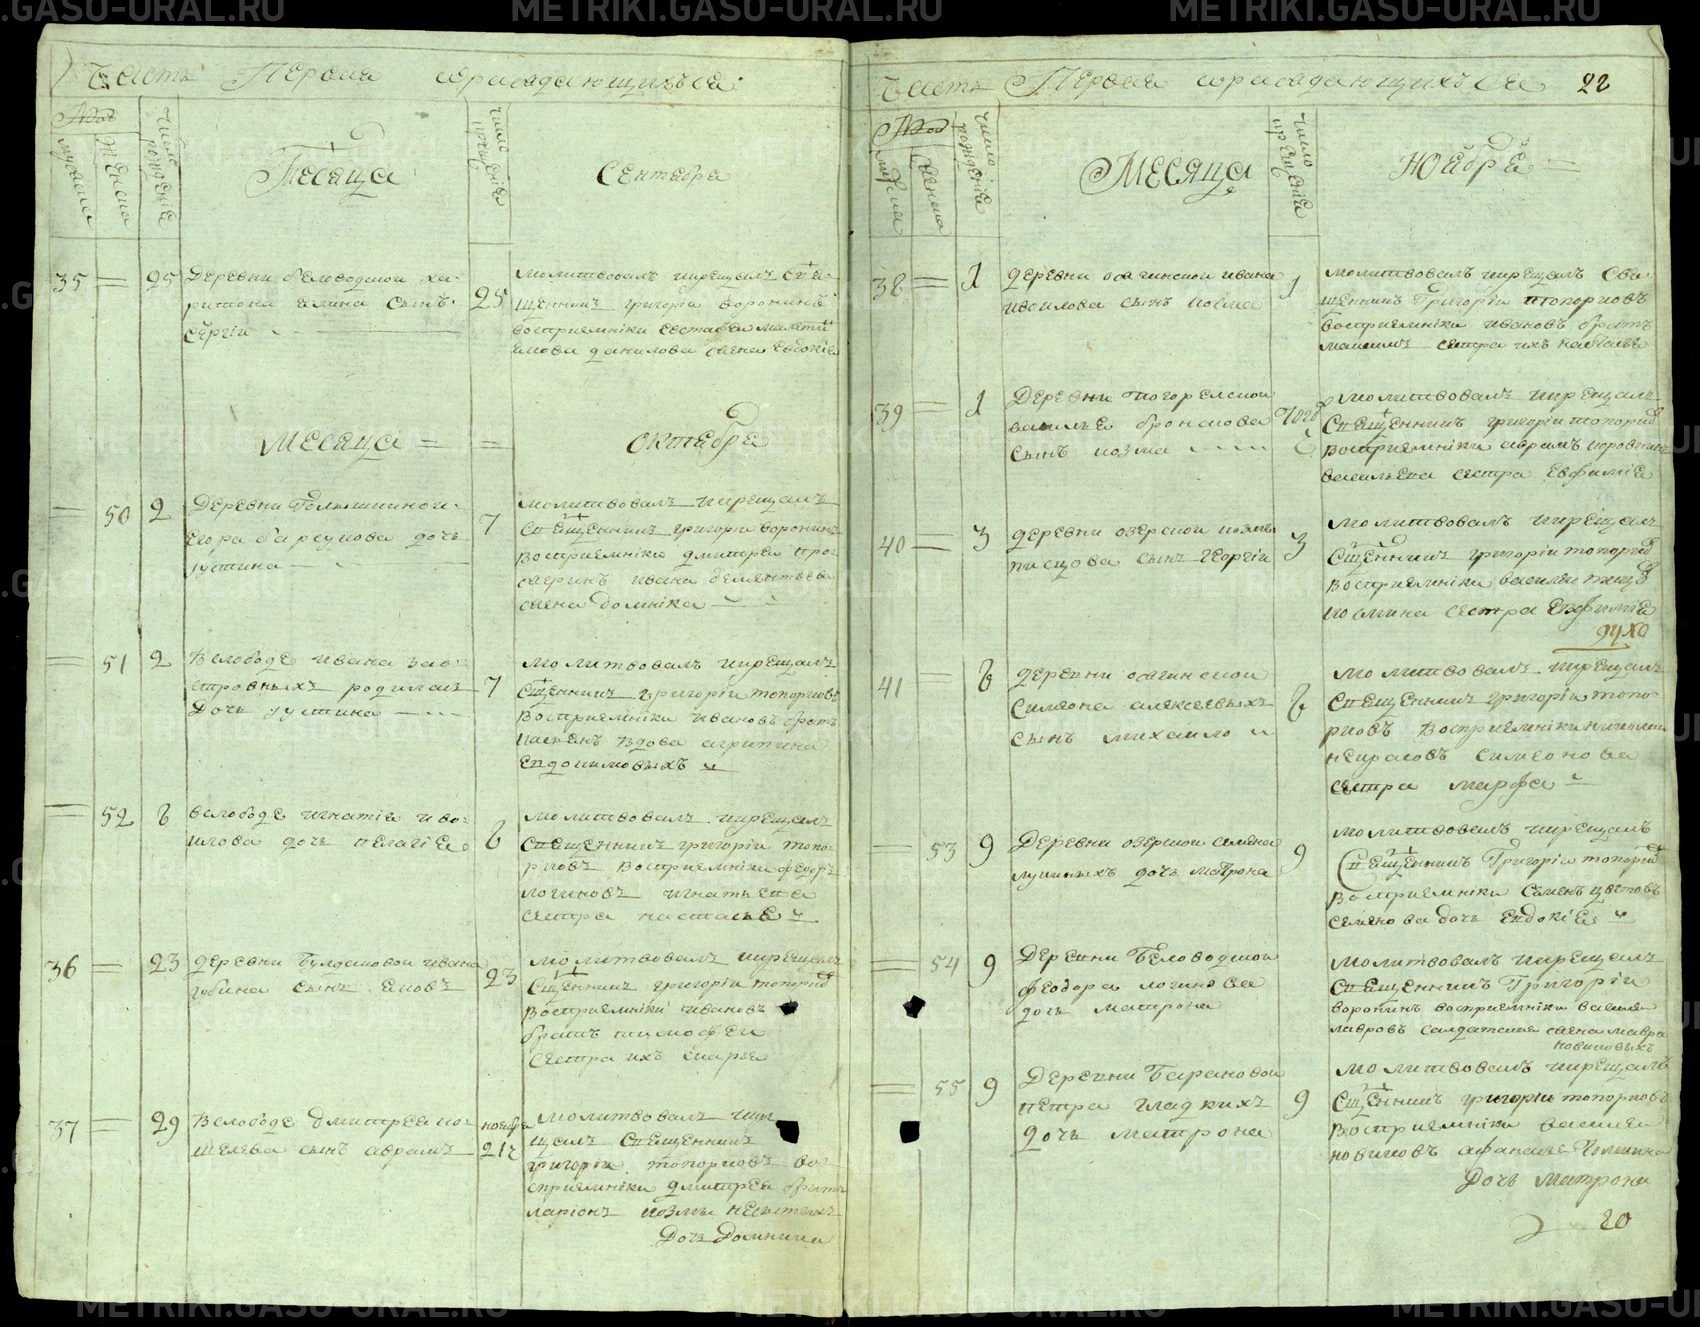 Часть Первая о раждающихъся
Числомъ
мужеска
женска
число рождений
Месяца
число крещения
Сентября
35 = 25 Деревни беловодской ха-
ритона елина сынъ
сергій
25
молитвовалъ икрещалъ свя-
щенникъ григорій воронинъ
восприемники
данилова жена евдокіа
Месяца =
=
октября
50 2
Деревни
егора дочь
устина
7
молитвовалъ икрещалъ
священникъ григорій воронинъ
восприемники дмитрей про-
ивана дементьева
жена домника
51 2
Вслободе ивана зао-
стровныхъ родилась
Дочь устина
7
молитвовалъ икрещалъ
священникъ григорій топорковъ
восприемники ивановъ братъ
вдова агрипина
евдокимовыхъ
52 6
вслободе игнатіа иво-
илова дочь пелагіеа
6
молитвовалъ икрещалъ
священникъ григорій топо-
рковъ восприемники федоръ
логиновъ игнатьева
сестра настасьеа
36 = 23
деревни Булдаковой ивана
губина сынъ иаковъ
23
молитвовалъ икрещалъ
священникъ григорій топорковъ
восприемники ивановъ
братъ тимофей
сестра ихъ марья
37 = 29
Вслободе дмитреа ко-
шелева сынъ аврамъ
ноября
21г
молитвовалъ икре
щалъ священникъ
григорій топорковъ во-
сприемники дмитрея братъ
ларіонъ козмы
Дочь Домника
Часть Первая о раждающихъся 22
мужеска
женска
число рождений
Месяца
число крещений
Ноября
38 = 1
деревни осагинской ивана
ивоилова сынъ козма
1
молитвовалъ икрещалъ свя-
щенникъ Григорій топорковъ
восприемники ивановъ братъ
максимъ сестра ихъ наталья
39 = 1
Деревни погорелской
василья бронскова
сынъ козма
того
молитвовалъ икрещалъ
священникъ григорій топорковъ
восприемники аврамъ коровинъ
васильева сестра евфиміа
40 = 3
деревни озерской козмы
писцова сынъ георгій
3
молитвовалъ икрещалъ
священникъ григорій топорковъ
восприемники василей
козмина сестра евфиміа
41 — 6
деревни осагинской
симеона алексеевыхъ
сынъ михаило
6
молитвовалъ икрещалъ
священникъ григорій топо-
рковъ восприемники николай
некрасовъ симеонова
сестра марфа
53 9
Деревни озерской семена
лушиныхъ дочь матрона
9
молитвовалъ икрещалъ
священникъ Григорій топорковъ
восприемники
семенова дочь евдокіа
54 9
Деревни Беловодской
феодора логинова
дочь матрона
молитвовалъ икрещалъ
священникъ Григорій
воронинъ восприемники василей
лавровъ салдатская жена мавра
новиковыхъ
55 9
Деревни Барановой
петра гладкихъ
дочь матрона
9
молитвовалъ икрещалъ
священникъ григорій топорковъ
восприемники василей
новиковъ афанасья
Дочь матрона
20
METRIKI.GASO-URAL.RU